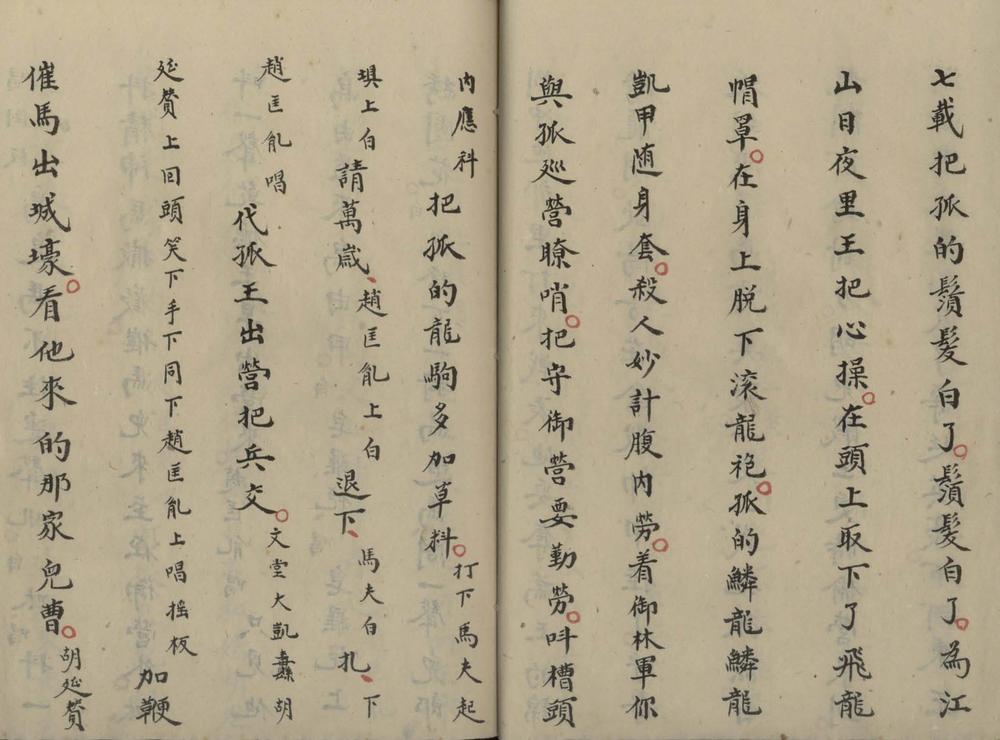 七載把孤的鬚髮白了。鬚髮白了。為江
山日夜里王把心操。在頭上取下了飛龍
帽罩。在身上脱下滚龍袍。孤的鱗龍鱗龍
凱甲随身套。殺人妙計腹内勞。着御林軍你
與孤巡營瞭哨。把守御營要勤勞。呌槽頭
内應科 把孤的龍駒多加草料。打下馬夫起
埧上白請萬歲、趙匡胤上白退下、馬夫白扎、下
趙匡胤唱代孤王出營把兵交。文堂大凱纛胡
延贊上回頭笑下手下同下趙匡胤上唱摇板 加鞭
催馬出城壕。看他來的那家兒曹。胡延贊